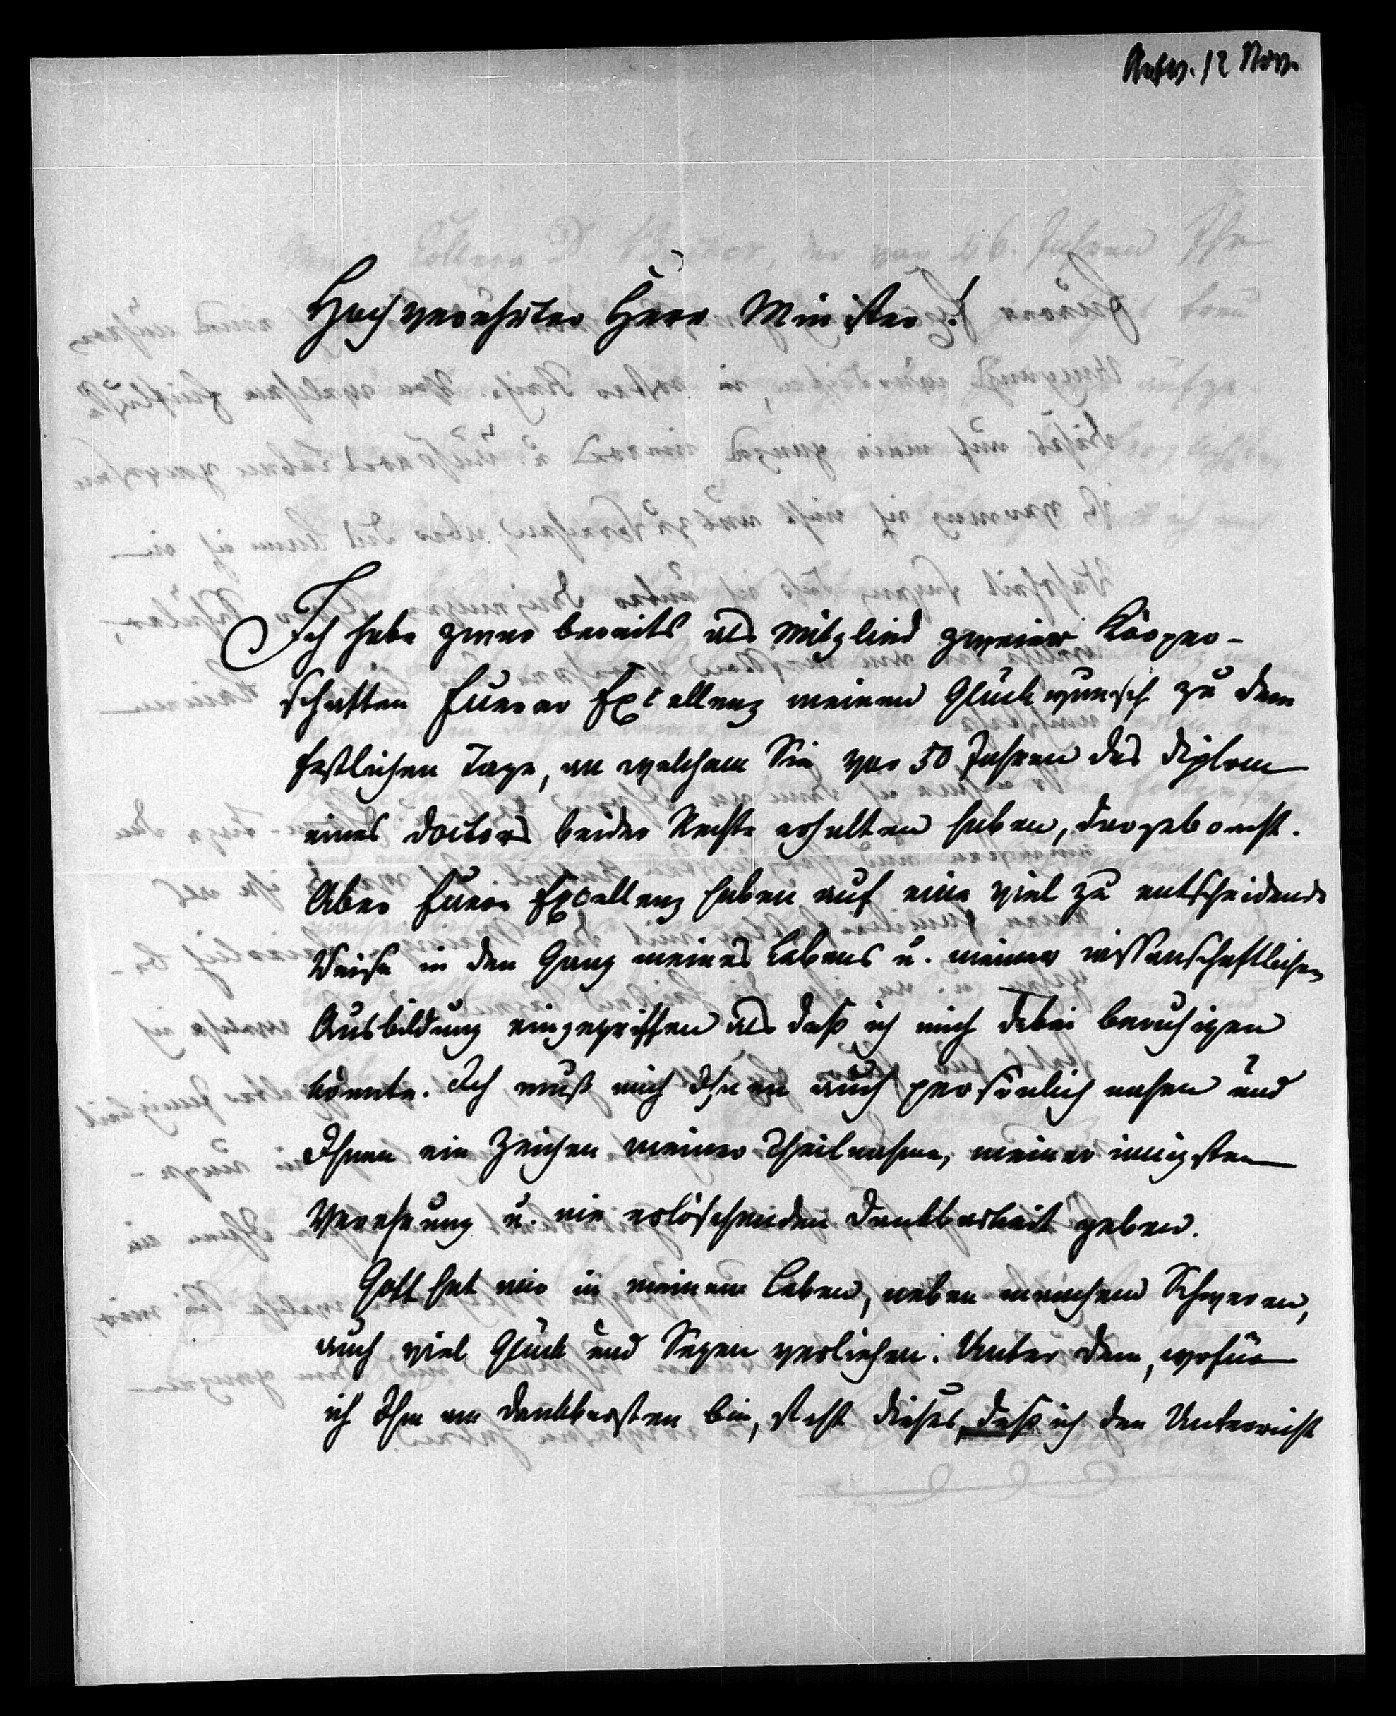 Antw. 12 Nov.
Hochverehrter Herr Minister!
Ich habe zwar bereits als Mitglied zweier Körper-
schaften Euerer Excellenz meinen Glückwunsch zu dem
festlichen Tage, an welchem Sie vor 50 Jahren das Diplom
eines Doctors beider Rechte erhalten haben, dargebracht.
Aber Euere Excellenz haben auf eine viel zu entscheidende
Weise in den Gang meines Lebens u. meiner wissenschaftlichen
Ausbildung eingegriffen als daß ich mich dabei beruhigen
könnte. Ich muß mich Ihnen auch persönlich nahen und
Ihnen ein Zeichen meiner Theilnahme, meiner innigsten
Verehrung u. nie erlöschenden Dankbarkeit geben.
Gott hat mir in meinem Leben, neben manchem Schweren,
auch viel Glück und Segen verliehen. Unter dem, wofür
ich Ihm am dankbarsten bin, steht dieses, daß ich den Unterricht